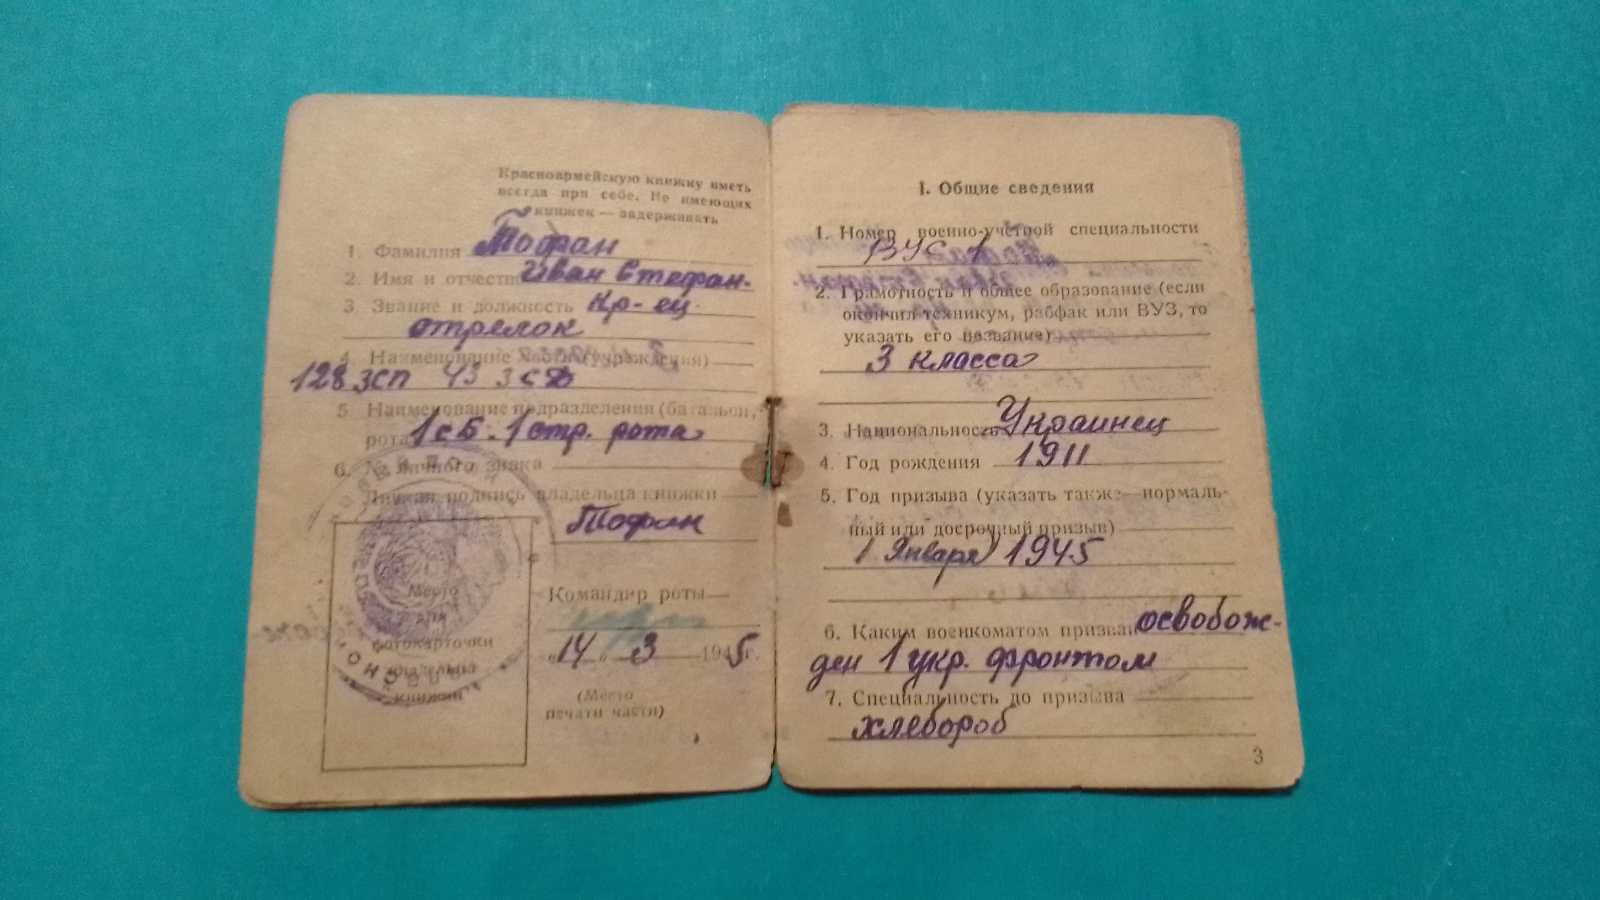 Красноармейскую книжку иметь
всегда при себе. Не имеющих
книжек — задерживать
1. Фамилия Тофан
2. Имя и отчество Иван Стефан-
3. Звание и должность Кр-ец
стрелок
4. Наименование части (учреждения)
128 зсп 43 зсд
5. Наименование подразделения (батальон,
рота) 1 сб. 1 стр. рота
6. № личного знака
Личная подпись владельца книжки
Тофан
Командир роты
„14" 3 1945г.
(Место
печати части)
Место
для
фотокарточки
владельца
книжки
I. Общие сведения
1. Номер военно-учетной специальности
ВУС 1
2. Грамотность и общее образование (если
окончил техникум, рабфак или ВУЗ, то
указать его название)
3 класса
3. Национальность Украинец
4. Год рождения 1911
5. Год призыва (указать также нормаль-
ный или досрочный призыв)
1 Января 1945
6. Каким военкоматом призван освобож-
ден 1 укр. фронтом
7. Специальность до призыва
хлебороб
3